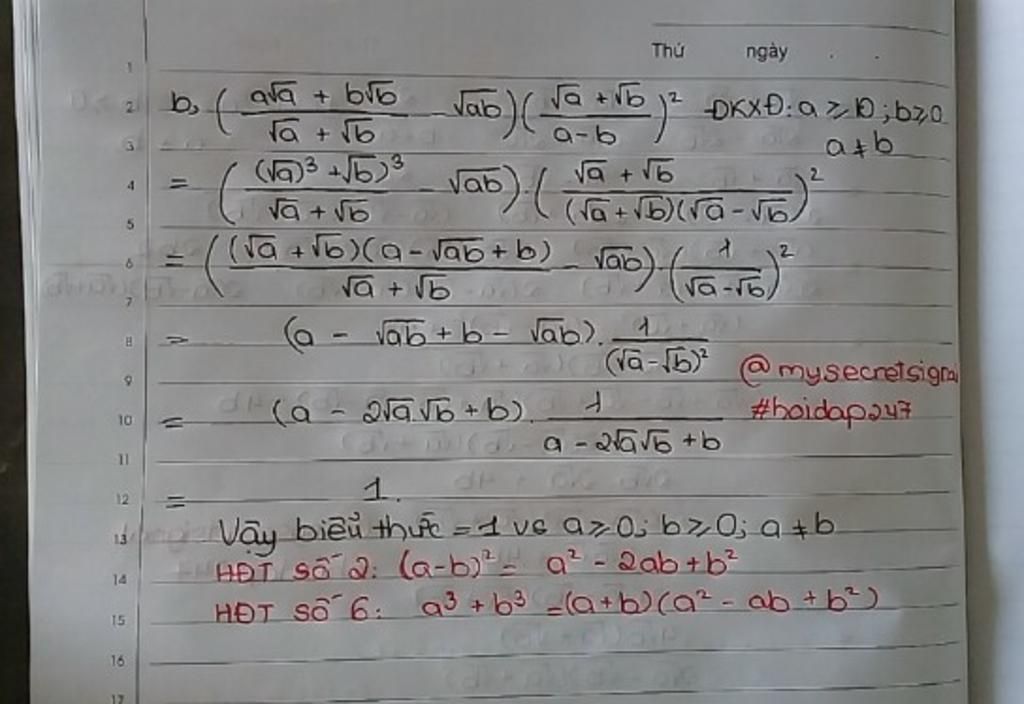 Thứ ngày . .
1
2 b, (a√a + b√b / √a + √b - √ab)(√a + √b / a - b)² ĐKXĐ: a ≥ 0; b ≥ 0
3 a ≠ b
4 = ((√a)³ + √b)³ / √a + √b - √ab).(√a + √b / (√a + √b)(√a - √b))²
5
6 = ((√a + √b)(a - √ab + b) / √a + √b - √ab).(1 / √a - √b)²
7
8 = (a - √ab + b - √ab). 1 / (√a - √b)²
@mysecretsignal
9
10 = (a - 2√a√b + b). 1 / a - 2√a√b + b
#hoidap247
11
12 = 1.
13 Vậy biểu thức = 1 vs a ≥ 0; b ≥ 0; a ≠ b
14 HĐT số 2: (a-b)² = a² - 2ab + b²
15 HĐT số 6: a³ + b³ = (a+b)(a² - ab + b²)
16
17